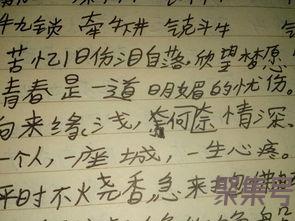 牛九锁 牵
苦忆旧伤泪自落,欣望梦愿
青春是一道明媚的忧伤。
向来缘浅,奈何 情深。
一个人,一座城,一生心疼。
平时不烧香,急来
聚集号